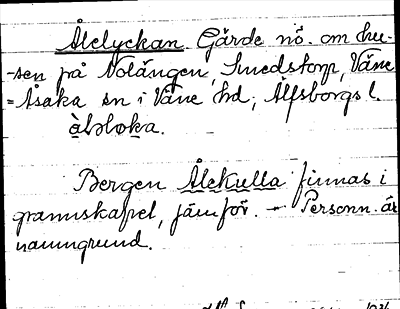 Ålelyckan. Gärde nö. om hu-
-sen på Nolängen, Smedstorp, Väne
=Åsaka sn i Väne hd, Älfsborgs l.
Bergen Ålekulla finnas i
grannskapet, jämför. - Personn. är
namngrund.